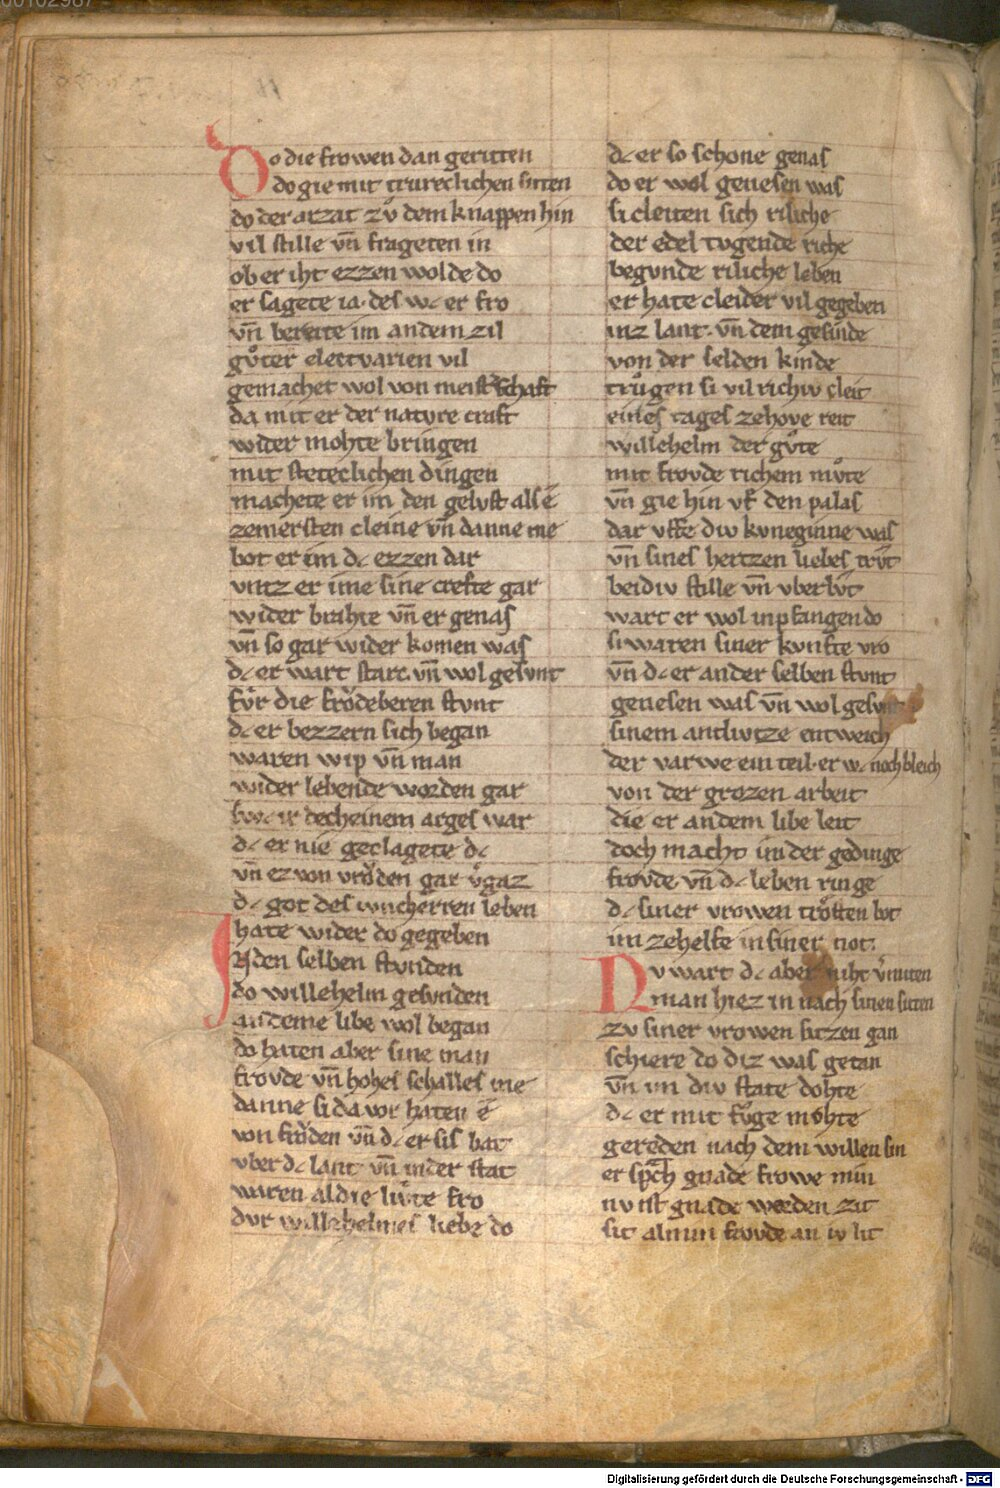 00102987
Do die frowen dan geritten
do gie mit trureclichen sitten
do der arzat zv̊ dem knappen hin
vil stille vn̄ frageten in
ob er iht ezzen wolde do
er sagete ia. des w᷒ er fro
vn̄ bereite im an dem zil
gv̊ter electvarien vil
gemachet wol von meist̉schaft
da mit er der natvre craft
wider mohte bringen
mit steteclichen dingen
machete er im den gelvst als ē
zem ersten cleine vn̄ danne me
bot er im d᷒ ezzen dar
vntz er ime sine crefte gar
wider brahte vn̄ er genas
vn̄ so gar wider komen was
d᷒ er wart starc. vn̄ wol gesvnt
fv̊r die frŏdeberen stvnt
d᷒ er bezzern sich began
waren wip vn̄ man
wider lebende worden gar
sw᷒ ir decheinem arges war
d᷒ er nie geclagete d᷒
vn̄ ez von vrŏden gar v̉gaz
d᷒ got des ivncherren leben
hate wider do gegeben
In den selben stvnden
do willehelm gesvnden
an deme libe wol began
do haten aber sine man
frovde vn̄ hohes schalles me
danne si da vor haten ē
von frŏden vn̄ d᷒ er sis bat
vber d᷒ lant vn̄ in der stat
waren al die lv̊te fro
dvr willehelmes liebe do
d᷒ er so schone genas
do er wol genesen was
si cleiten sich riliche
der edel tvgende riche
begvnde riliche leben
er hate cleider vil gegeben
inz lant. vn̄ dem gesinde
von der selden kinde
trv̊gen si vil richiv cleit
eines tages ze hove reit
willehelm der gv̊te
mit frovde richem mv̊te
vn̄ gie hin vf den palas
dar vffe div kvneginne was
vn̄ sines hertzen liebes trv̊t
beidiv stille vn̄ vberlv̊t
wart er wol inpfangen do
si waren siner kvnfte vro
vn̄ d᷒ er an der selben stvnt
genesen was vn̄ wol gesvnt
sinem antlvtze entweich
der varwe ein teil. er w᷒ noch bleich
von der grozen arbeit
die er an dem libe leit
doch macht im der gedinge
frovde. vn̄ d᷒ leben ringe
d᷒ siner vrowen trŏsten bot
im ze helfe in siner not.
Nv wart d᷒ aber niht v̉miten
man hiez in nach sinen sitten
zv siner vrowen sitzen gan
schiere do diz was getan
vn̄ im div state dohte
d᷒ er mit fv̊ge mohte
gereden nach dem willen sin
er sp̄ch gnade frowe min
nv ist gnade werden zit
sit al min frovde an iv lit
Digitalisierung gefördert durch die Deutsche Forschungsgemeinschaft - DFG